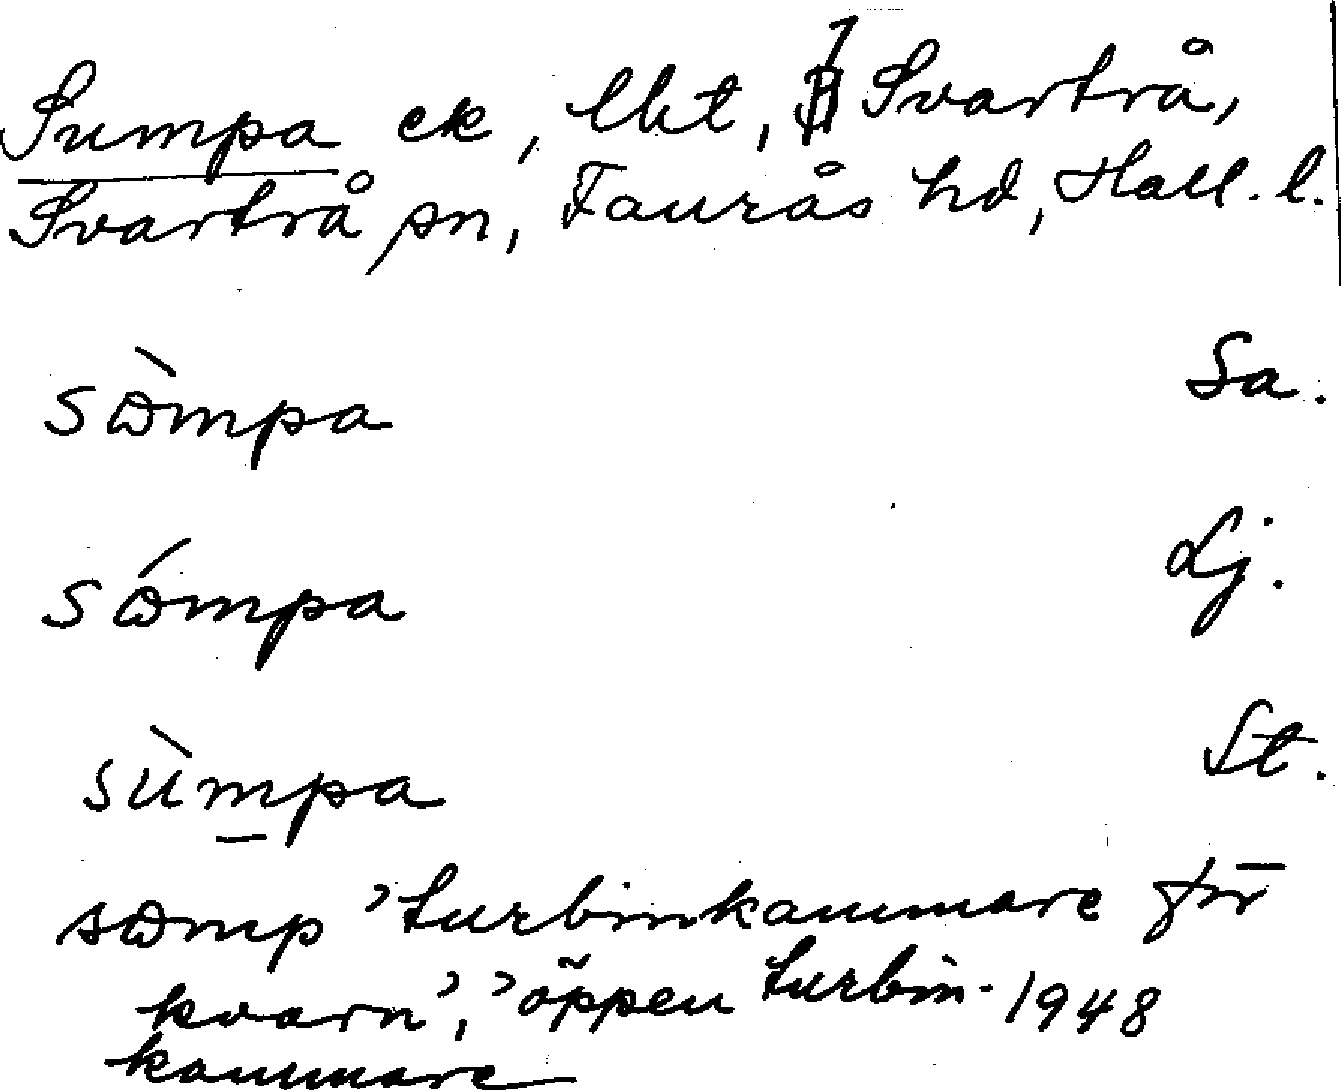 Sumpa ek, lht, 1 Svartrå,
Svartrå sn, Faurås hd, Hall. l.
sɷ̀mpa Sa.
sɷ́mpa Lj.
sùm̲pa St.
sɷmp 'turbinkammare för
kvarn', 'öppen turbin- 1948
kammare